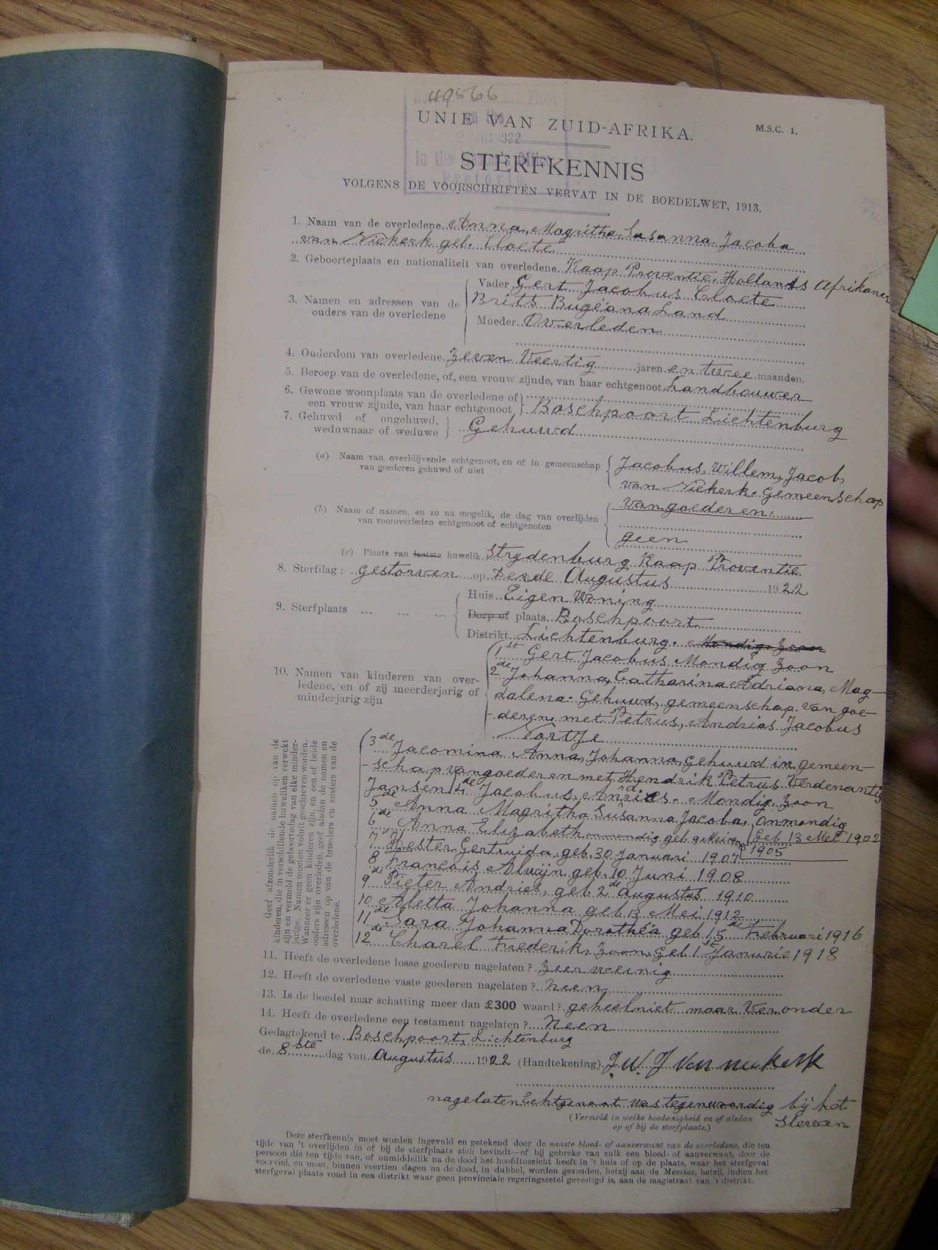 49566
UNIE VAN ZUID-AFRIKA.
M.S.C. 1.
STERFKENNIS
VOLGENS DE VOORSCHRIFTEN VERVAT IN DE BOEDELWET, 1913.
1. Naam van de overledene Anna, Magritha Susanna Jacoba
van Niekerk geb. Cloete
2. Geboorteplaats en nationaliteit van overledene. Kaap Proventie. Hollands Afrikaner
3. Namen en adressen van de ouders van de overledene
Vader Gert Jacobus Cloete
Brits Bugeana Land
Moeder. Overleden
4. Ouderdom van overledene. Zeven Veertig jaren en twee maanden.
5. Beroep van de overledene, of, een vrouw zijnde, van haar echtgenoot Landbouwer
6. Gewone woonplaats van de overledene of een vrouw zijnde, van haar echtgenoot Boschpoort Lichtenburg
7. Gehuwd of ongehuwd, weduwnaar of weduwe Gehuwd
(a) Naam van overblijvende echtgenoot, en of in gemeenschap van goederen gehuwd of niet
Jacobus, Willem, Jacob,
van Niekerk. Gemeenschap
van goederen.
(b) Naam of namen, en so na mogelik, de dag van overlijden van vooroverleden echtgenoot of echtgenoten
geen
(c) Plaats van laatste huwelik Strydenburg Kaap Proventie.
8. Sterfdag: gestorven op derde Augustus 1922
9. Sterfplaats ... ... ...
Huis Eigen Woning
Dorp of plaats. Boschpoort
Distrikt. Lichtenburg. Mondig Zoon
10. Namen van kinderen van overledene, en of zij meerderjarig of minderjarig zijn
1ste Gert Jacobus Mondig Zoon
2de Johanna, Catharina Adriana, Mag-
dalena. Gehuwd, gemeenschap van goe-
deren, met Petrus, Andries Jacobus
Vortje
Geef afzonderlik de namen op van de
kinderen, die in verschillende huweliken verwekt
zijn en vermeld de geboortedag van elke minder-
jarige. Namen moeten voluit geschreven worden.
Wanneer er geen kinderen zijn, en een of beide
ouders zijn overleden, geef alsdan de namen en
adressen op van de broeders en zusters van de
overledene.
3de Jacomina, Anna, Johanna, Gehuwd in gemeen-
schap van goederen met Hendrik Petrus Verdenantis
Jansen 4de Jacobus, Andries. Mondig Zoon
5de Anna Magritha Susanna Jacoba, onmondig
Geb 13 Mei 1902
6de Anna Elizabeth
1905
7de Hester Gertruida, geb. 30 Januari 1907
8 Francois Alwijn geb. 10 Juni 1908
9de Pieter Andries, geb 2de Augustus 1910
10 Aletta Johanna geb 13 Mei 1912
11de Sara Johanna Dorothea geb 15de Februari 1916
12de Charel Frederik, Zoon, Geb 1ste Janurie 1918
11. Heeft de overledene losse goederen nagelaten? Zeer weinig
12. Heeft de overledene vaste goederen nagelaten? Neen
13. Is de boedel naar schatting meer dan £300 waard? geheel niet maar Ver onder
14. Heeft de overledene een testament nagelaten? Neen
Gedagtekend te Boschpoort, Lichtenburg
de 8ste dag van Augustus 1922 (Handtekening) J.W.J van niekerk
nagelaten Echtgenoot was tegenwoordig bij het
sterven
(Vermeld in welke hoedanigheid en of alsdan
op of bij de sterfplaats.)
Deze sterfkennis moet worden ingevuld en getekend door de naaste bloed- of aanverwant van de overledene, die ten
tijde van 't overlijden in of bij de sterfplaats zich bevindt—of bij gebreke van zulk een bloed- of aanverwant, door de
persoon die ten tijde van, of onmiddelik na de dood het hoofdtoezicht heeft in 't huis of op de plaats, waar het sterfgeval
voorviel, en moet, binnen veertien dagen na de dood, in dubbel, worden gezonden, hetzij aan de Meester, hetzij, indien het
sterfgeval plaats vond in een distrikt waar geen provinciale regeringszetel gevestigd is, aan de magistraat van 't distrikt.